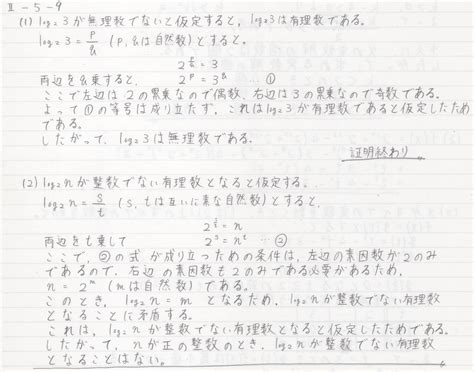 Ⅱ-5-9
(1) log₂3が無理数でないと仮定すると, log₂3は有理数である。
log₂3 = p/q (p, qは自然数)とすると。
2^(p/q) = 3
両辺をq乗すると、 2^p = 3^q …①
ここで左辺は2の累乗なので偶数、右辺は3の累乗なので奇数である。
よって①の等号は成り立たず、これはlog₂3が有理数であると仮定したため
である。
したがって、log₂3は無理数である。
証明終わり
(2) log₂nが整数でない有理数となると仮定する。
log₂n = s/t (s, tは互いに素な自然数)とすると,
2^(s/t) = n
両辺をt乗して 2^s = n^t …②
ここで, ②の式が成り立つための条件は, 左辺の素因数が2のみ
であるので, 右辺の素因数も2のみである必要があるため,
n = 2^m (mは自然数)である。
このとき, log₂n = m となるため, log₂nが整数でない有理数
となることに矛盾する。
これは, log₂nが整数でない有理数となると仮定したためである。
したがって, nが正の整数のとき, log₂nが整数でない有理数
となることはない。